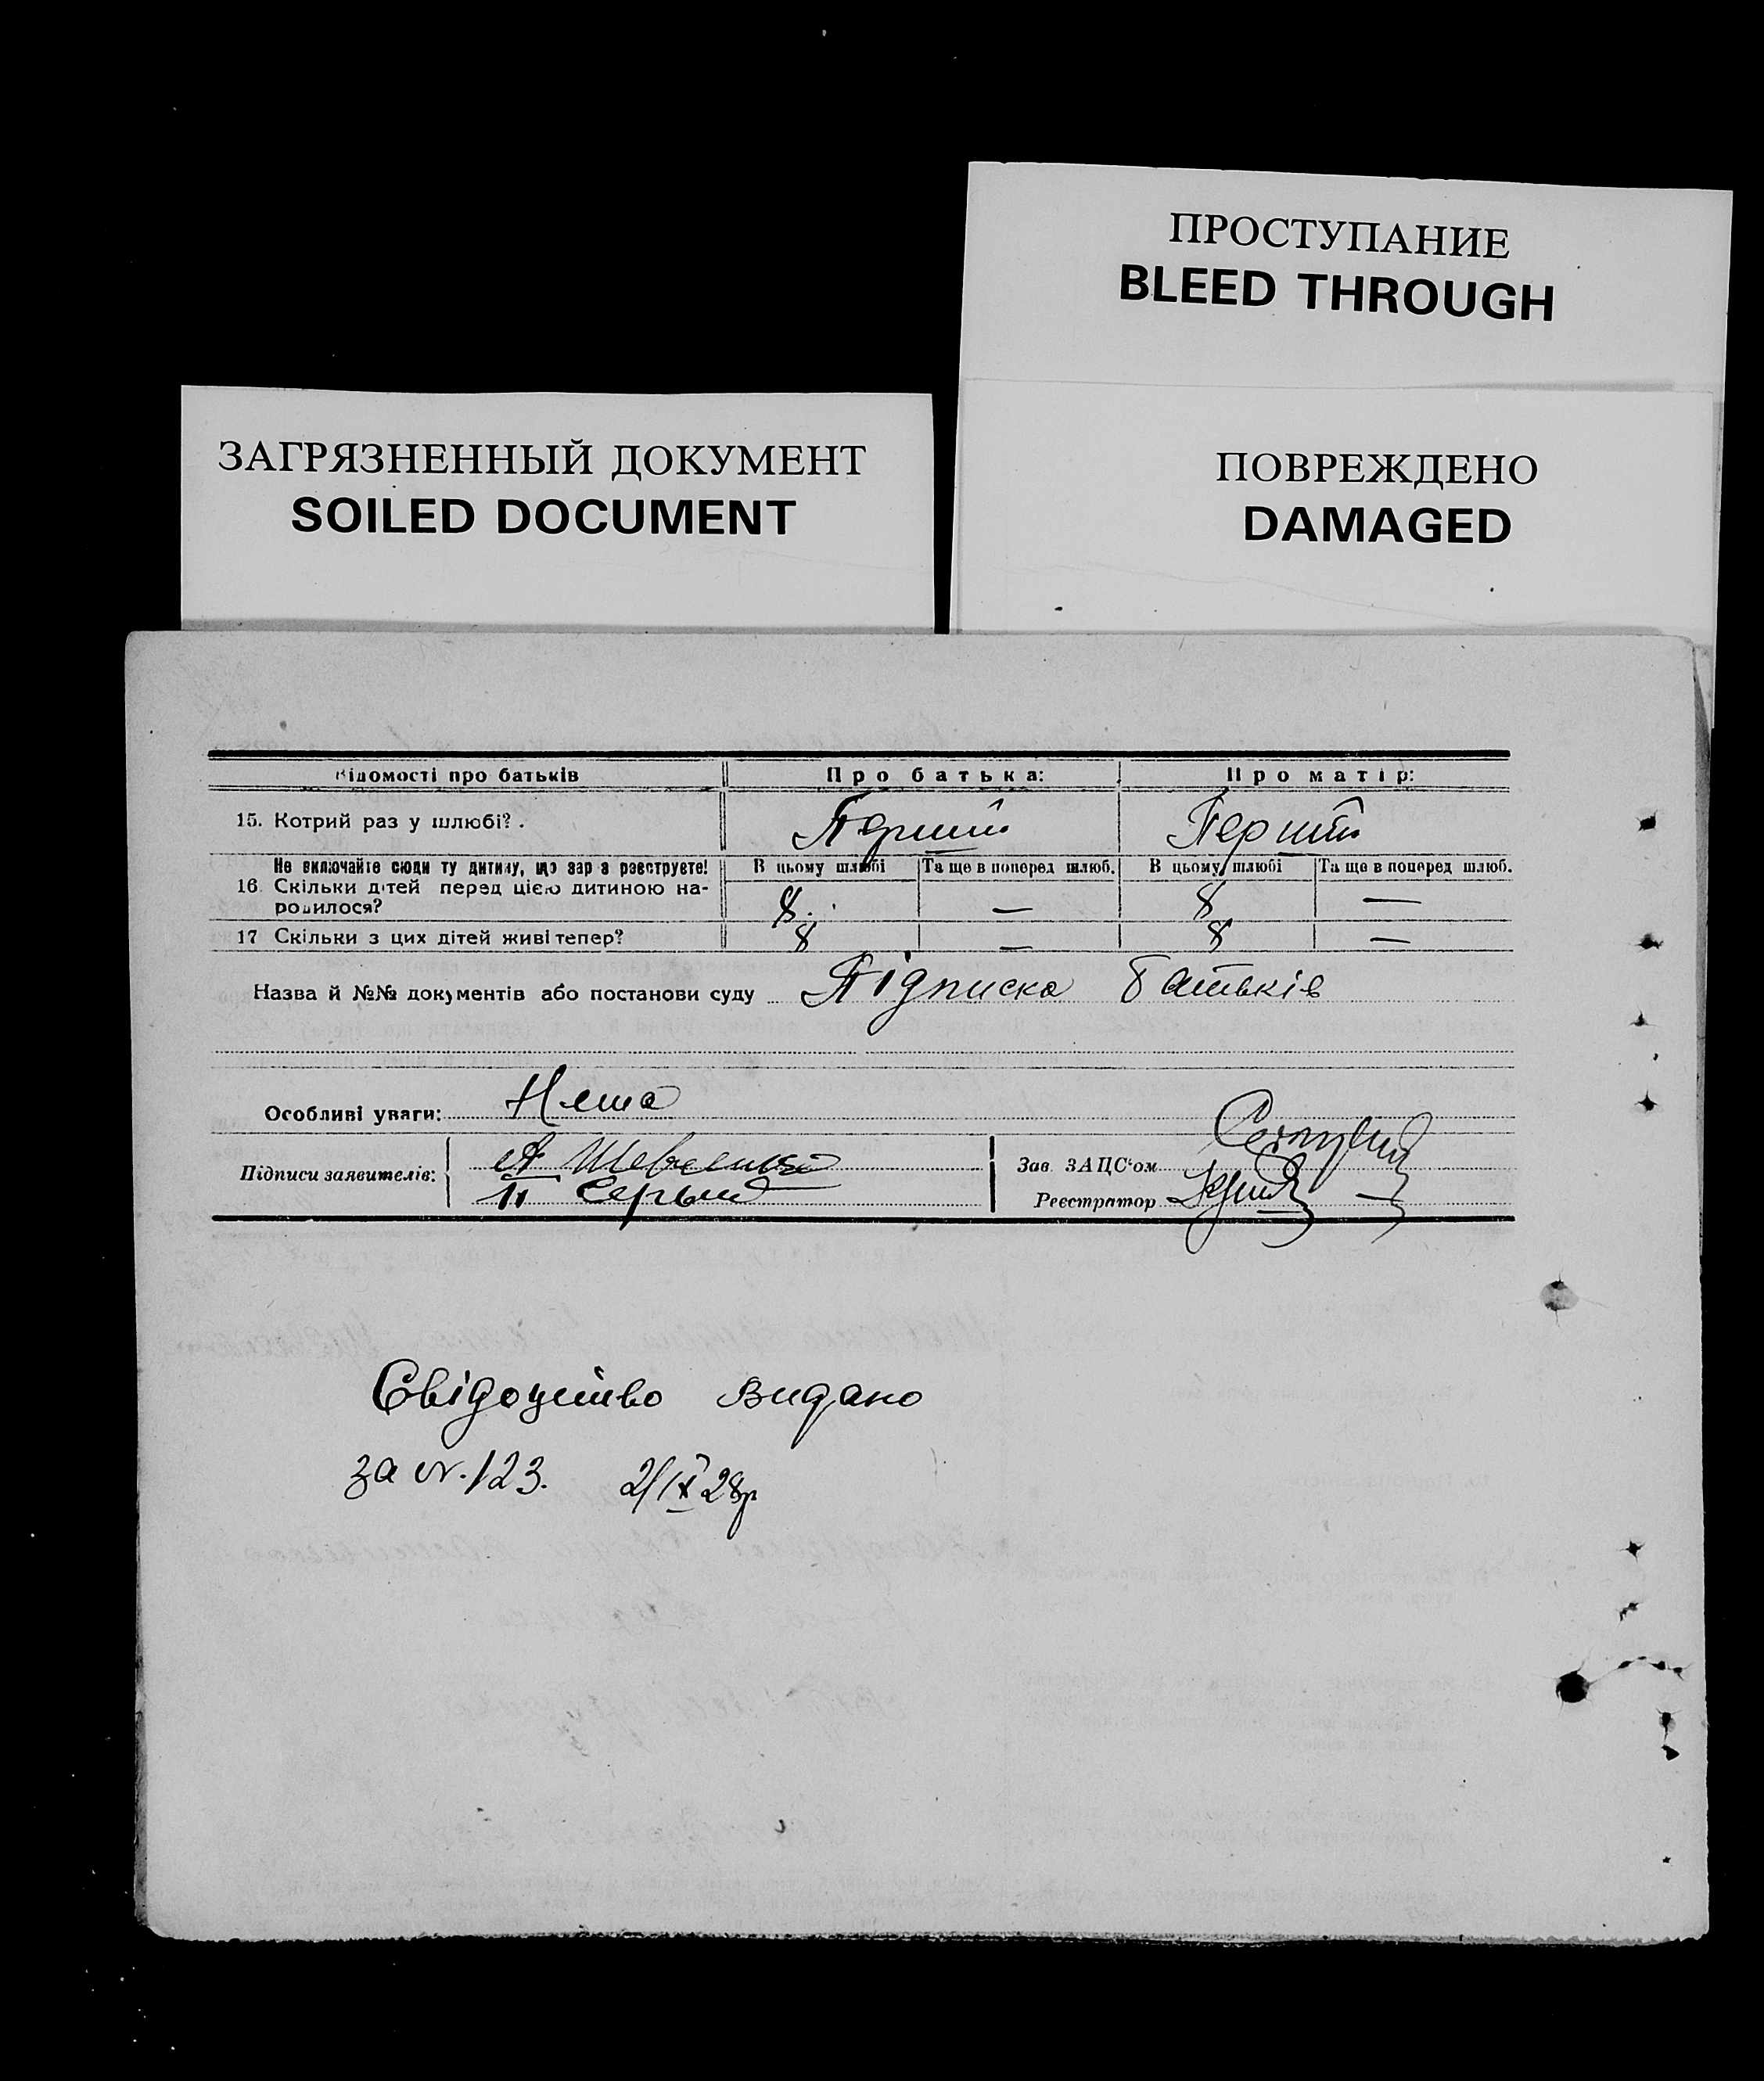 ПРОСТУПАНИЕ
BLEED THROUGH
ЗАГРЯЗНЕННЫЙ ДОКУМЕНТ
SOILED DOCUMENT
ПОВРЕЖДЕНО
DAMAGED
Відомості про батьків Про батька: Про матір:
15. Котрий раз у шлюбі? . Перший Перший
Не включайте сюди ту дитину, що зараз реєструєте! В цьому шлюбі Та ще в поперед шлюб. В цьому шлюбі Та ще в поперед шлюб.
16. Скільки дітей перед цією дитиною на-
родилося? 8. — 8 —
17 Скільки з цих дітей живі тепер? 8 — 8 —
Назва й №№ документів або постанови суду Підписка батьків
Особливі уваги: Нема
Підписи заявителів: А Шевченко
Зав. ЗАЦС'ом
Реєстратор
Свідоцтво видано
за №. 123. 2/IX 28р